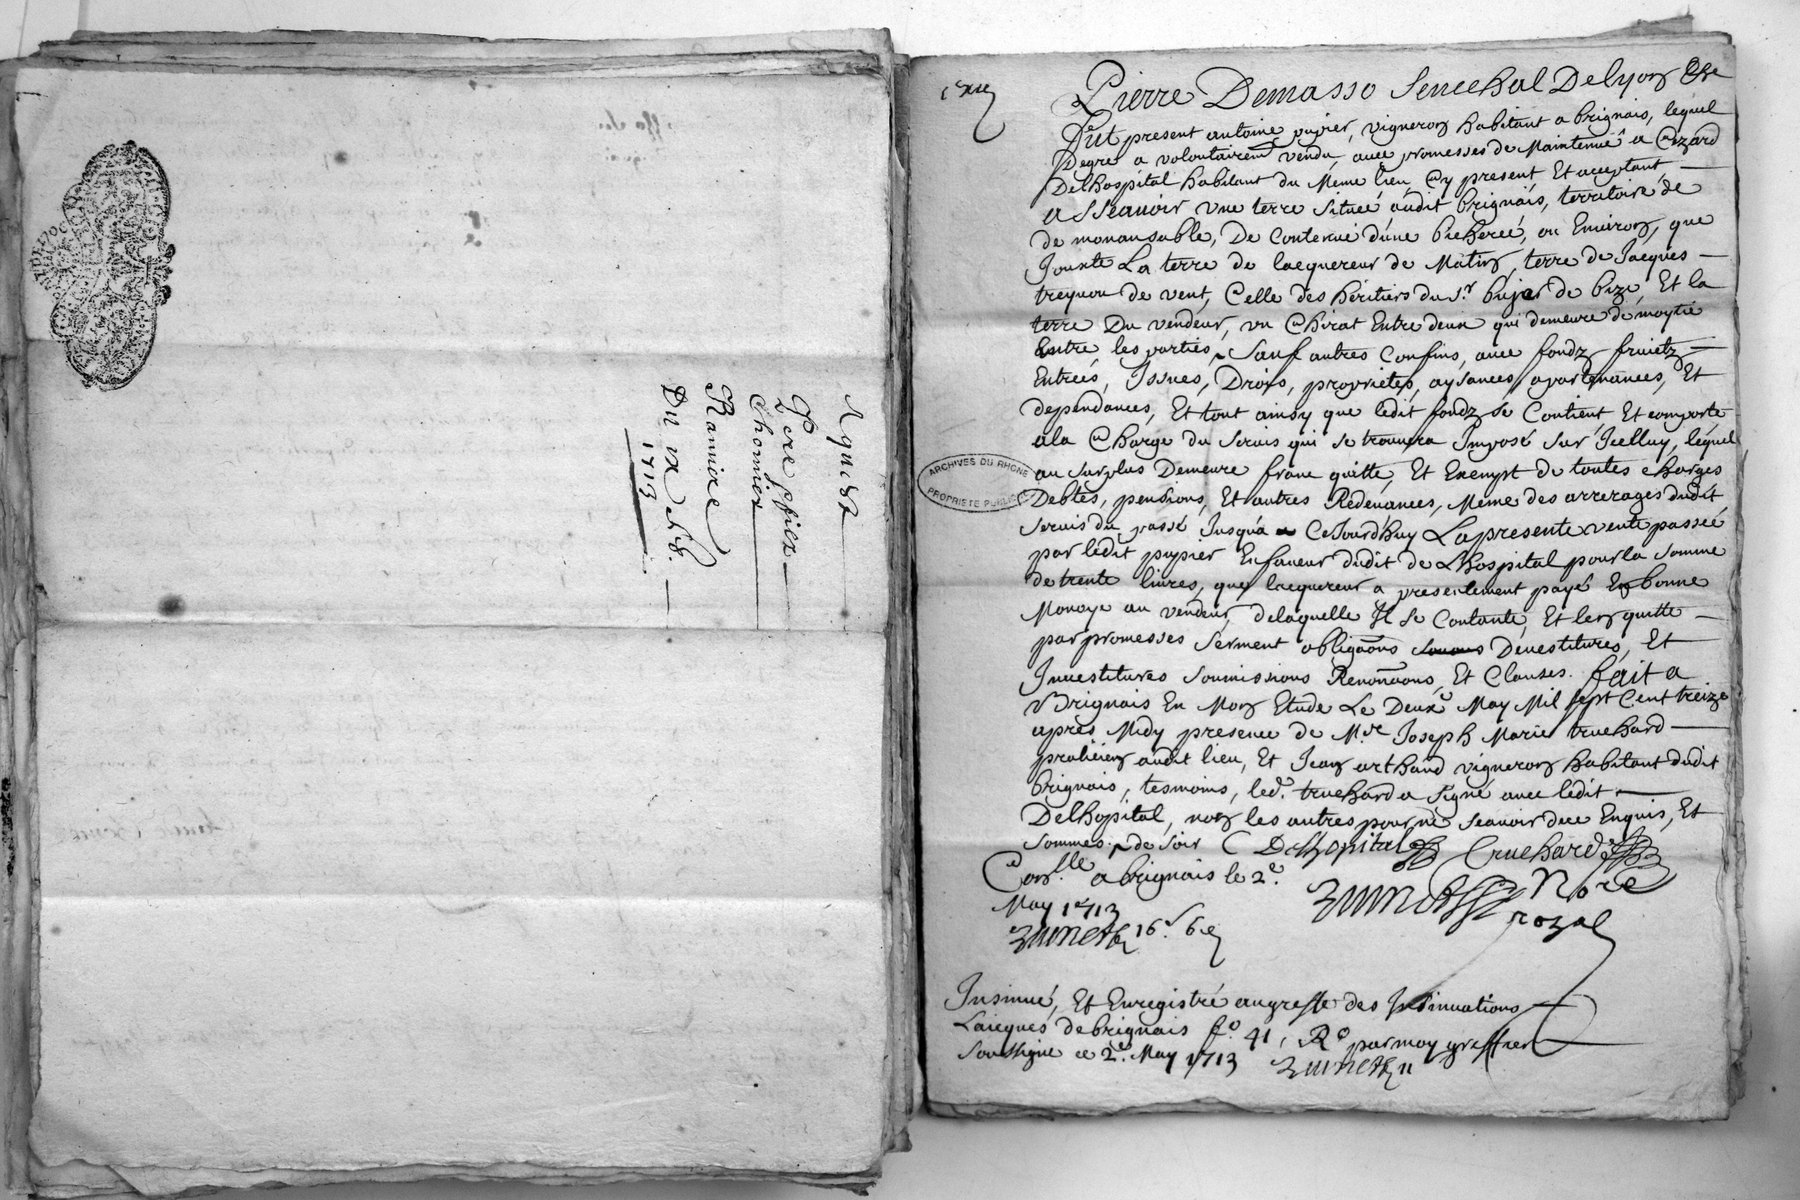 Aquist
Chomier
Ramière
Du ix febr.
1713
Pierre Demasso Senechal De lyon &c
fut present antoine pupier, vigneron habitant a brignais, lequel
Degre a volontairemt vendu avec promesses de Maintenue a
Delhospital habitant du Meme lieu Cy present Et acceptant
a Sçeauoir vne terre Située audit brignais, territoire de
de monansable, De Contenue d'une bicherée, ou Enuiron, que
Jouxte La terre de lacquereur de Matin, terre de Jacques
treynou de vent, Celle des héritiers du Sr. de bize, Et la
terre Du vendeur, vn Chirat Entre deux qui demeure de moytié
Entre les parties, Sauf autres Confins, auec fondz fruictz
Entrées, Jssues, Droits, proprietés, aysances, apartenances, Et
dependances, Et tout ainsy que ledit fondz se Contient, Et comporte
ala Charge du Seruis qui se trouuera Jmposé Sur Jcelluy, lequel
au Surplus Demeure franc quitte, Et Exempt de toutes charges
Debtes, pensions, Et autres Redeuances, Meme des arrerages dudit
Seruis du passé Jusqua a CeJourdhuy Lapresente vente passée
par ledit pupier Enfaueur dudit de Lhospital pour la Somme
de trente liures, que lacquereur a presentement payé En bonne
Monoye au vendeur, delaquelle Jl se Contante, Et len quitte
par promesses Serment obligaons Deuestitures, Et
Jnuestitures Soumissions Renonaons, Et Clauses. fait a
Brignais En Mon Etude Le Deuxe May Mil Sept Cent treize
apres Midy presence de M.re Joseph Marie truchard
praticien audit lieu, Et Jean arthaud vigneron habitant dudit
brignais, tesmoins, led. truchard a Signé auec ledit
Delhopital, non les autres pour ne Sçeauoir de ce Enquis, Et
Sommés. de Soir C Delhopital Truchard
Con.lle a brignais le 2e. Nore
May 1713 royal
16 s. 6 d
Jnsinué, Et Enregistré augreffe des Jnsinuations
Laicques de brignais fo. 41, Ro par moy greffier
Soussigné ce 2e. May 1713
ARCHIVES DU RHONE
PROPRIETE PUBLIQUE